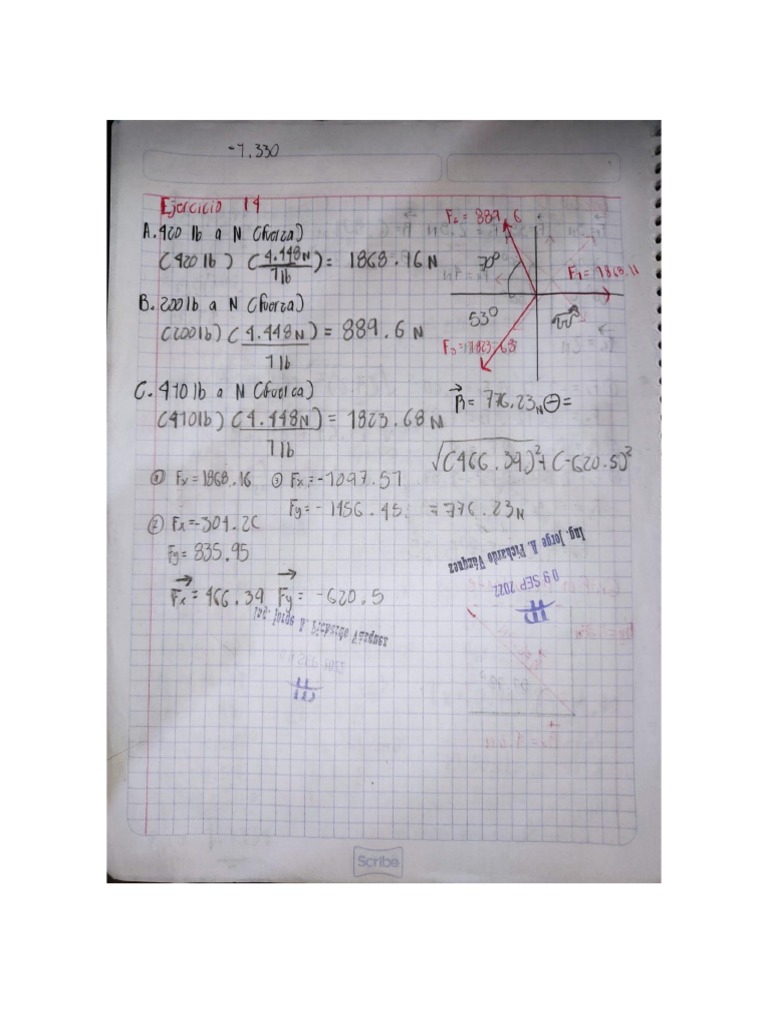 -1.330
Ejercicio 14
A. 420 lb a N (fuerza)
(420 lb) (4.448N/1 lb) = 1868.16 N
B. 200 lb a N (fuerza)
(200 lb) (4.448N/1 lb) = 889.6 N
C. 410 lb a N (fuerza)
(410 lb) (4.448N/1 lb) = 1823.68 N
① Fx = 1868.16 ③ Fx = -1097.51
Fy = -1456.45
② Fx = -304.26
Fy = 835.95
Fx = 466.39 Fy = -620.5
F2 = 889.6
70°
F1 = 1868.16
53°
F3 = 1823.68
R = 776.23N Θ =
√(466.39)² + (-620.5)²
= 776.23N
Ing. Jorge A. Pichardo Vázquez
09 SEP 2022
Ing. Jorge A. Pichardo Vázquez
Scribe